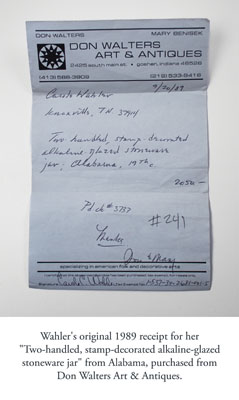 DON WALTERS MARY BENISEK
DON WALTERS
ART & ANTIQUES
2425 south main st. • goshen, indiana 46526
(413) 586-3909 (219) 533-9416
9/20/89
Carole Wahler
Knoxville, TN 37914
Two handled, stamp-decorated
alkaline-glazed stoneware
jar, Alabama, 19th c.
2050 —
Pd ck # 3737
#241
Thanks
Don & Mary
specializing in american folk and decorative arts
Wahler's original 1989 receipt for her
"Two-handled, stamp-decorated alkaline-glazed
stoneware jar" from Alabama, purchased from
Don Walters Art & Antiques.